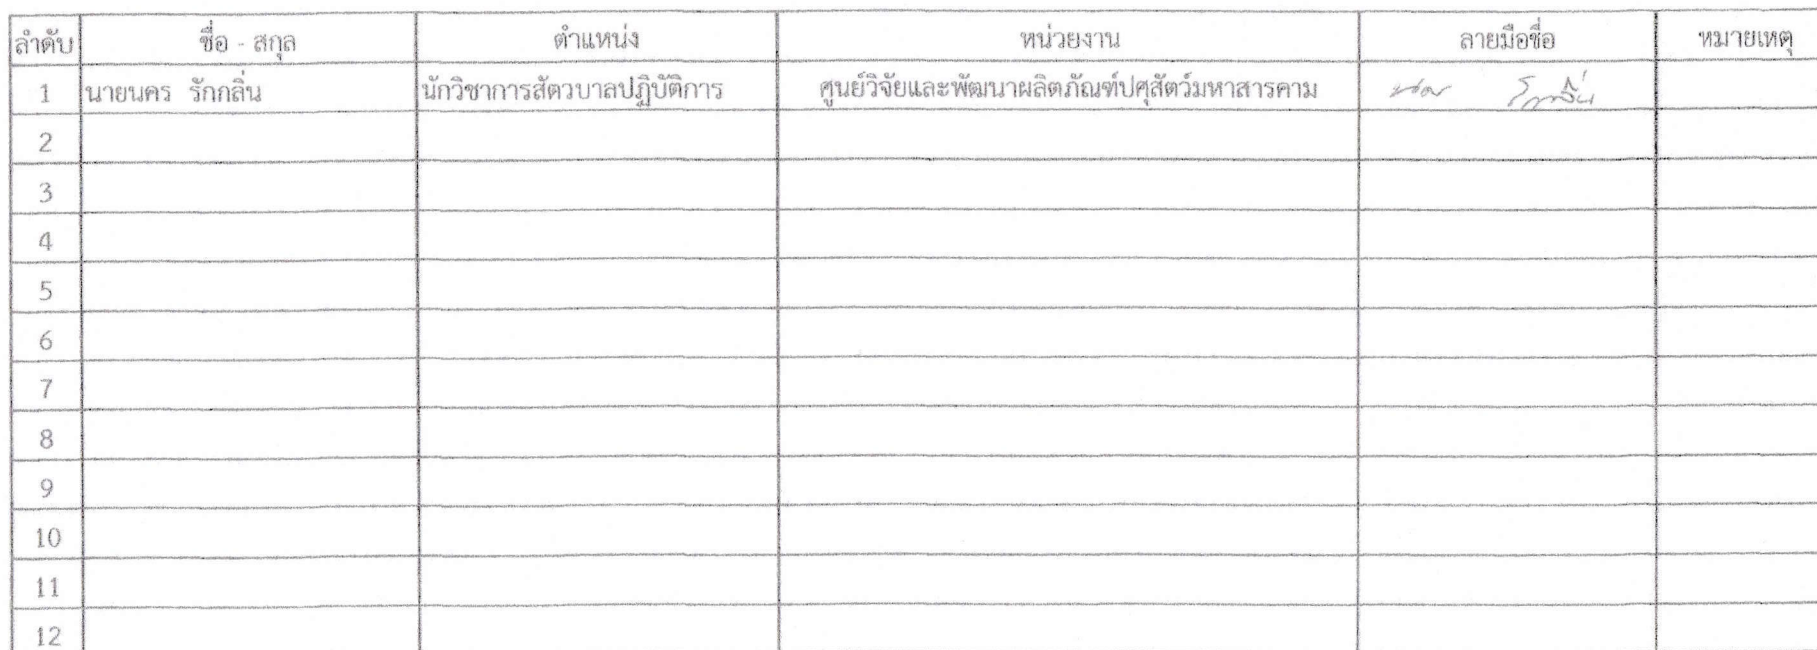 ลำดับ ชื่อ - สกุล ตำแหน่ง หน่วยงาน ลายมือชื่อ หมายเหตุ
1 นายนคร รักกลิ่น นักวิชาการสัตวบาลปฏิบัติการ ศูนย์วิจัยและพัฒนาผลิตภัณฑ์ปศุสัตว์มหาสารคาม
2
3
4
5
6
7
8
9
10
11
12